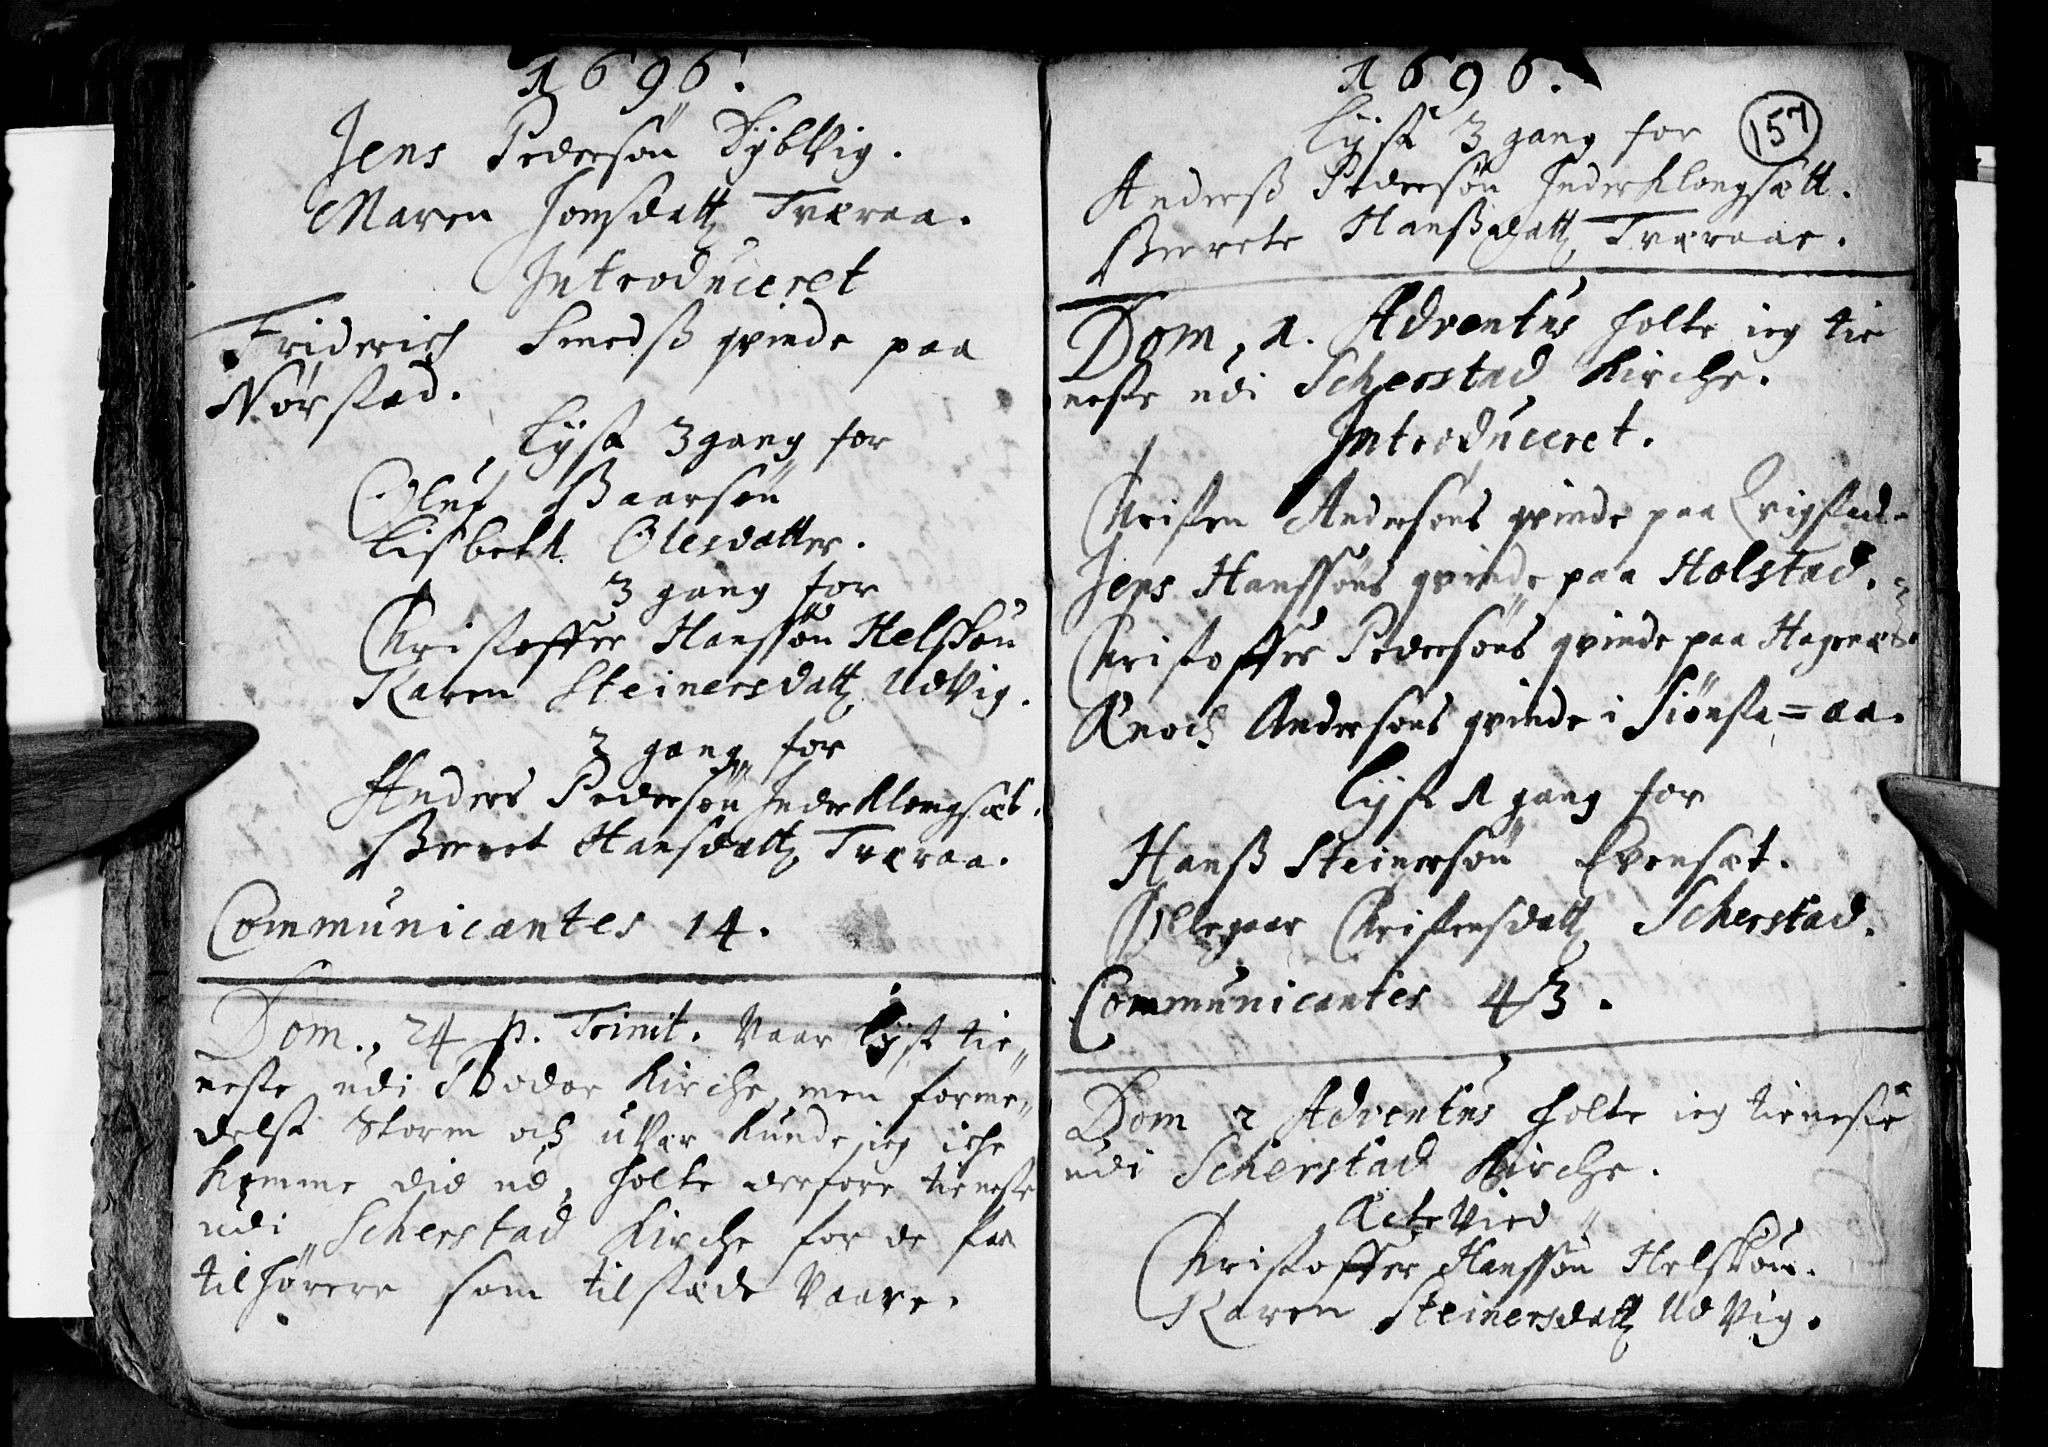 1696.
Jens Pedersøn Dybvig.
Maren Jonsdatt Tværaa.
Introduceret
Friderich Smedß qvinde paa
Nørstad.
Lyst 3 gang for
Oluf Baarsøn
Lisbeth Olesdatter.
3 gang for
Christoffer Hanssøn Helskou
Karen Steinersdatt Udvig.
3 gang for
Anders Pedersøn Inder Klongsæt.
Beret Hansdatt Tværaa.
Communicantes 14.
Dom. 24 p. Trinit. Vaar lyst tie„
neste udi Bodøe Kirche, men forme„
delst Storm och uVær kunde jeg iche
komme did ud, holte derfore tieneste
udi Scherstad Kirche for de faa
tilhørere som tilstæde Vaare.
1696.
157
Lyst 3 gang for
Anderß Pedersøn Inder Klongsætt.
Berete Hanßdatt Tværaae.
Dom. 1. Adventus holte ieg tie
neste udi Scherstad Kirche.
Introduceret.
Christen Andersøns qvinde paa Evigstad.
Jens Hanssøns qvinde paa Holstad.
Christoffer Pedersøns qvinde paa Hagenæs.
Enoch Andersøns qvinde i Siønsta=aa.
Lyst 1 gang for
Hanß Steinersøn Evensæt.
Illegaar Christensdatt Scherstad.
Communicantes 43.
Dom 2 Adventus holte ieg tieneste
udi Scherstad Kirche.
Ectevied
Christoffer Hanssøn Helskou.
Karen Steinersdatt Udvig.